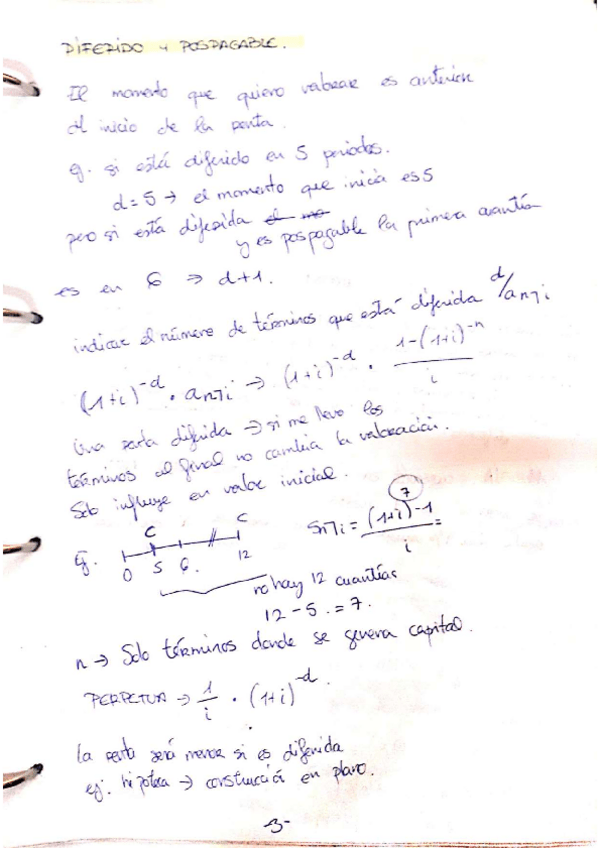 DIFERIDO Y POSPAGABLE.
El momento que quiero valorar es anterior
al inicio de la renta.
ej. si está diferido en 5 periodos.
d=5 → el momento que inicia es 5
pero si está diferida el mo
y es pospagable la primera cuantía
es en 6 ⇒ d+1.
indicar el número de términos que está diferida d/an⌉i
(1+i)^-d · an⌉i → (1+i)^-d · 1-(1+i)^-n / i
Una renta diferida → si me llevo los
términos al final no cambia la valoración.
Solo influye en valor inicial.
Sn⌉i = (1+i)^7-1 / i =
ej. C C
0 5 6. 12
no hay 12 cuantías
12-5.=7.
n → Solo términos donde se genera capital.
PERPETUA → 1/i · (1+i)^-d.
la renta será menor si es diferida
ej: hipoteca → construcción en plano.
-3-